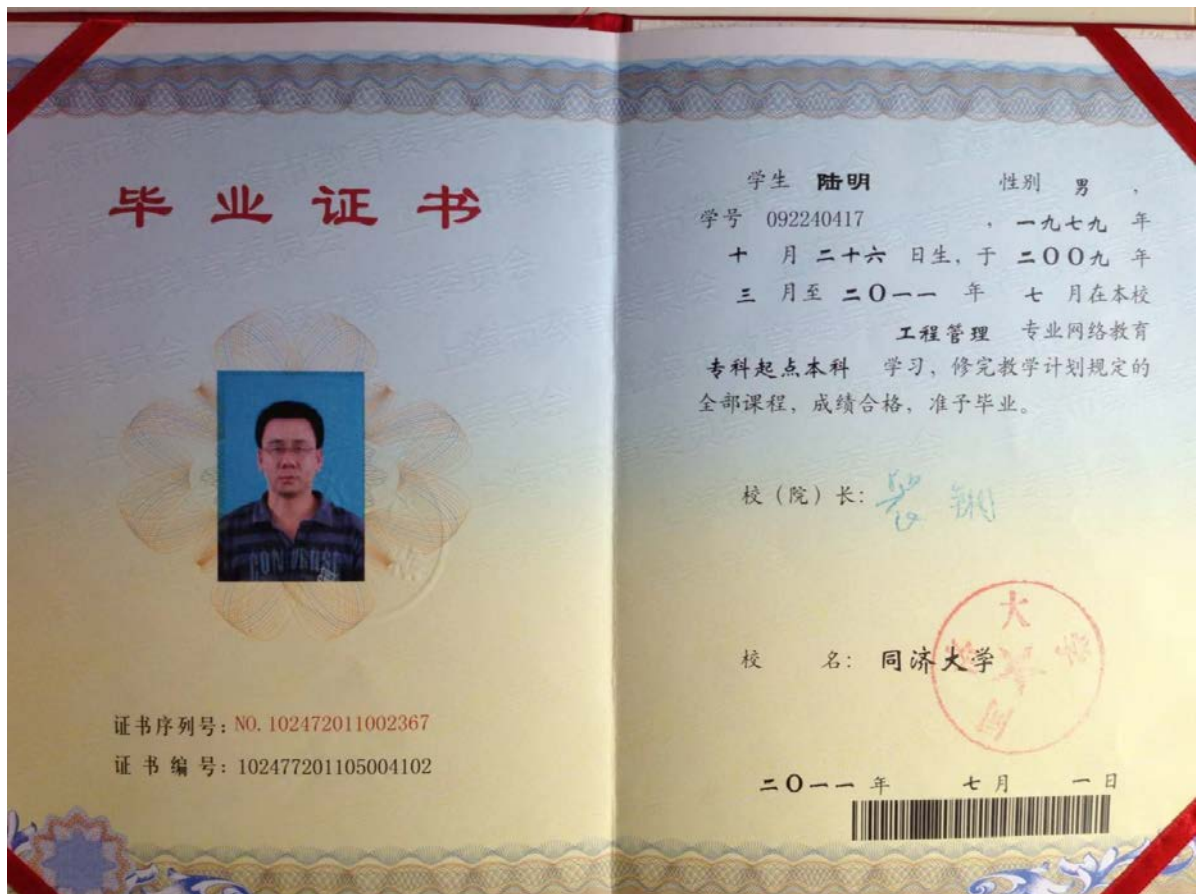 毕业证书
CONVERSE
证书序列号：NO. 102472011002367
证书编号：102477201105004102
学生 陆明 性别 男 ，
学号 092240417 ，一九七九 年
十 月 二十六 日生，于 二〇〇九 年
三 月至 二〇一一 年 七 月在本校
工程管理 专业网络教育
专科起点本科 学习，修完教学计划规定的
全部课程，成绩合格，准予毕业。
校（院）长：
校 名：同济大学
同济大学
二〇一一 年 七 月 一 日